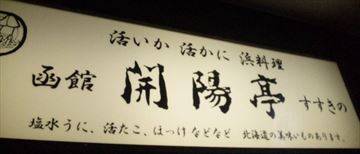 活いか 活かに 浜料理
函館 開陽亭 すすきの
塩水うに、活たこ、ほっけなどなど 北海道の美味いものあります。